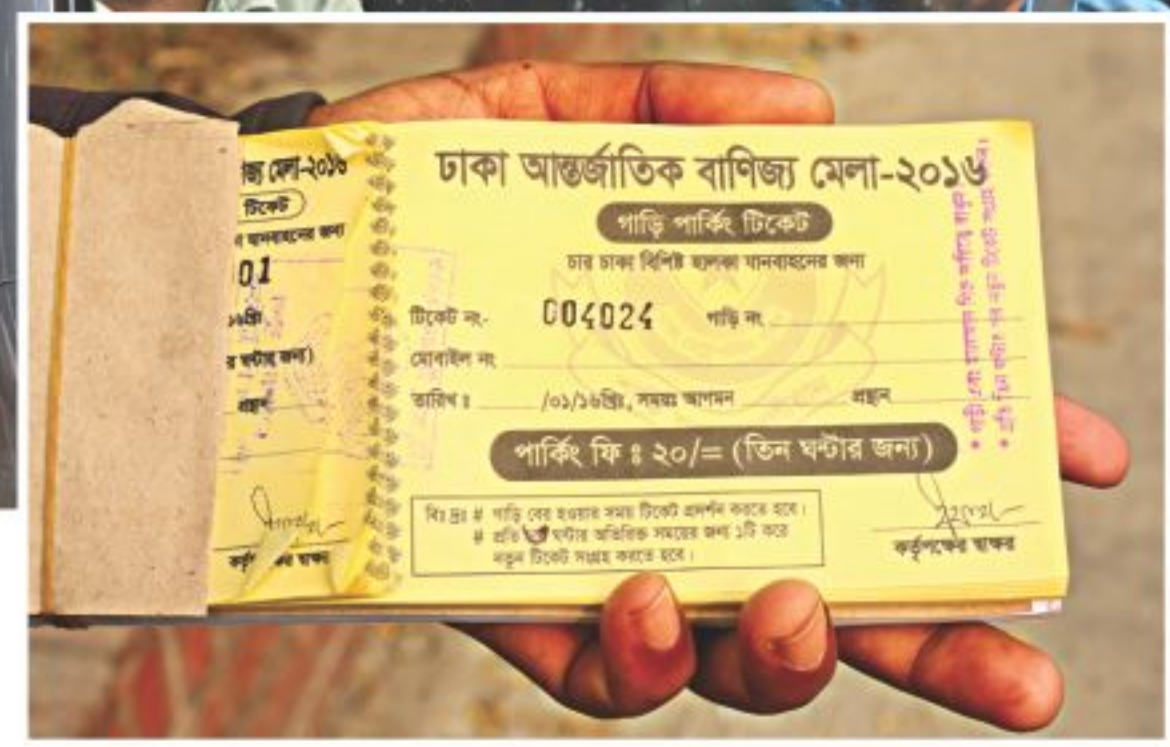 জ্য মেলা-২০১৬
টিকেট
যানবাহনের জন্য
01
১৬খ্রিঃ
র ঘন্টার জন্য)
প্রস্থান
স্বাক্ষর
ঢাকা আন্তর্জাতিক বাণিজ্য মেলা-২০১৬
গাড়ি পার্কিং টিকেট
চার চাকা বিশিষ্ট হালকা যানবাহনের জন্য
টিকেট নং- 004024 গাড়ি নং
মোবাইল নং
তারিখ ঃ /০১/১৬খ্রিঃ, সময়ঃ আগমন প্রস্থান
পার্কিং ফি ঃ ২০/= (তিন ঘন্টার জন্য)
বিঃ দ্রঃ # গাড়ি বের হওয়ার সময় টিকেট প্রদর্শন করতে হবে।
# প্রতি ঘন্টার অতিরিক্ত সময়ের জন্য ১টি করে
নতুন টিকেট সংগ্রহ করতে হবে।
কর্তৃপক্ষের স্বাক্ষর